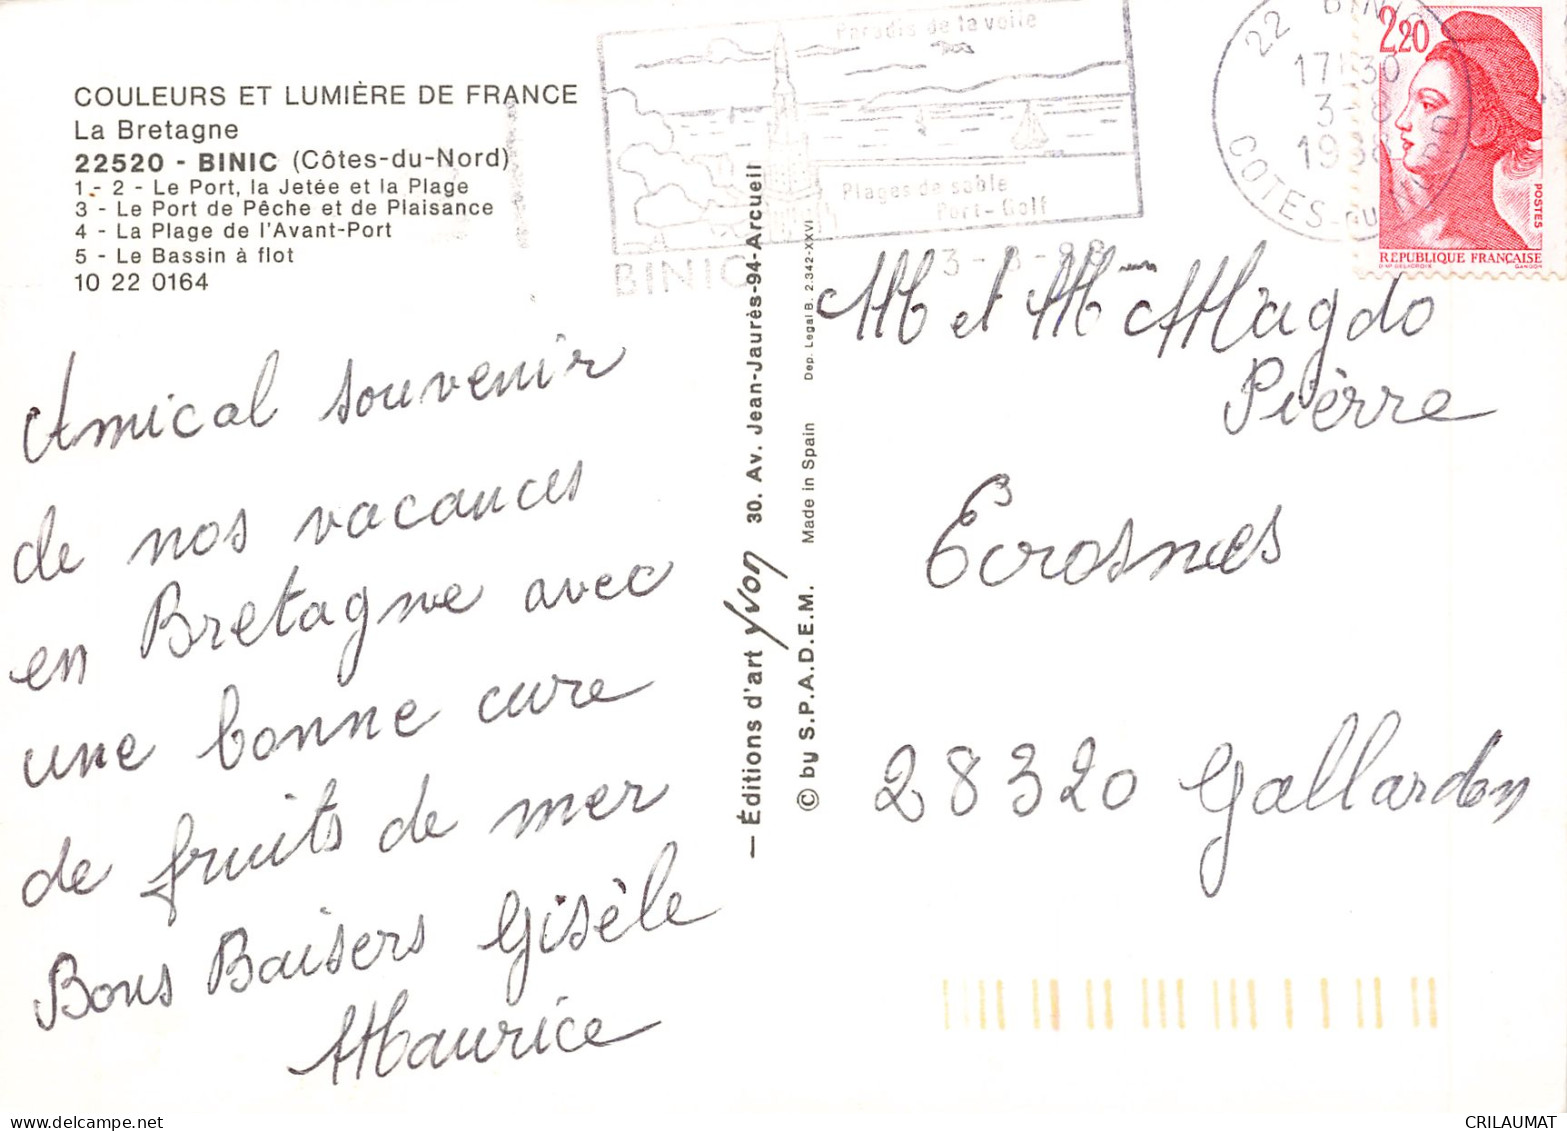 COULEURS ET LUMIÈRE DE FRANCE
La Bretagne
22520 - BINIC (Côtes-du-Nord)
1 - 2 - Le Port, la Jetée et la Plage
3 - Le Port de Pêche et de Plaisance
4 - La Plage de l'Avant-Port
5 - Le Bassin à flot
10 22 0164
Paradis de la voile
Plages de sable
Port-Golf
BINIC
22 BINIC
17 30
3 - 8
COTES-DU-NORD
2,20
POSTES
REPUBLIQUE FRANÇAISE
D'AP. DELACROIX GANDON
Amical souvenir
de nos vacances
en Bretagne avec
une bonne cure
de fruits de mer
Bons Baisers Gisèle
Maurice
— Éditions d'art yvon 30. Av. Jean-Jaurès-94-Arcueil
© by S.P.A.D.E.M. Made in Spain Dep. Legal B. 2.342-XXVI
M et Mme Magdo
Pièrre
Ecrosnes
28320 Gallardon
CRILAUMAT